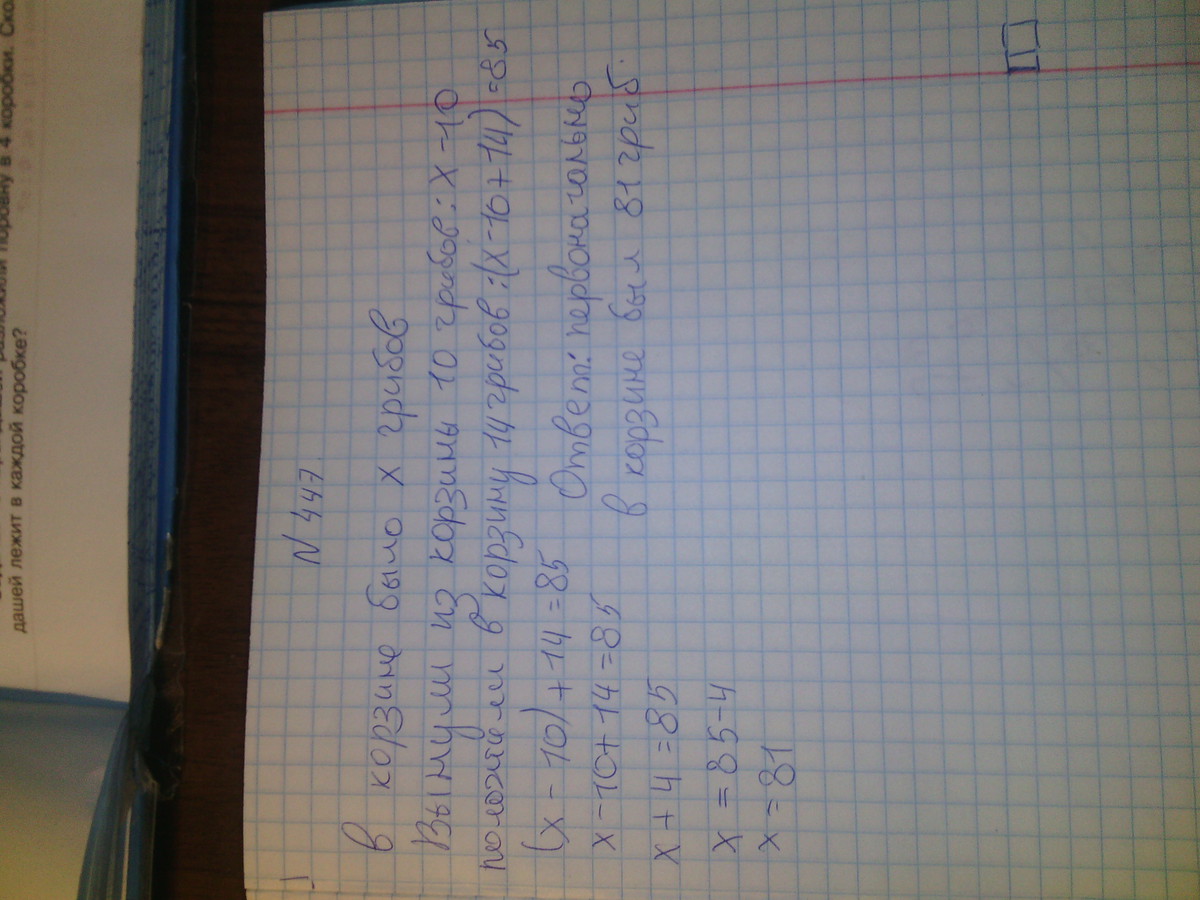 поровну в 4 коробки.
дашей лежит в каждой коробке?
N 447.
В корзине было х грибов
Вынули из корзины 10 грибов: х -10
положили в корзину 14 грибов :(х-10+14)=85
(х - 10)+14=85
х -10+14=85
х+4=85
х =85-4
х =81
Ответ: первоначально
в корзине был 81 гриб.